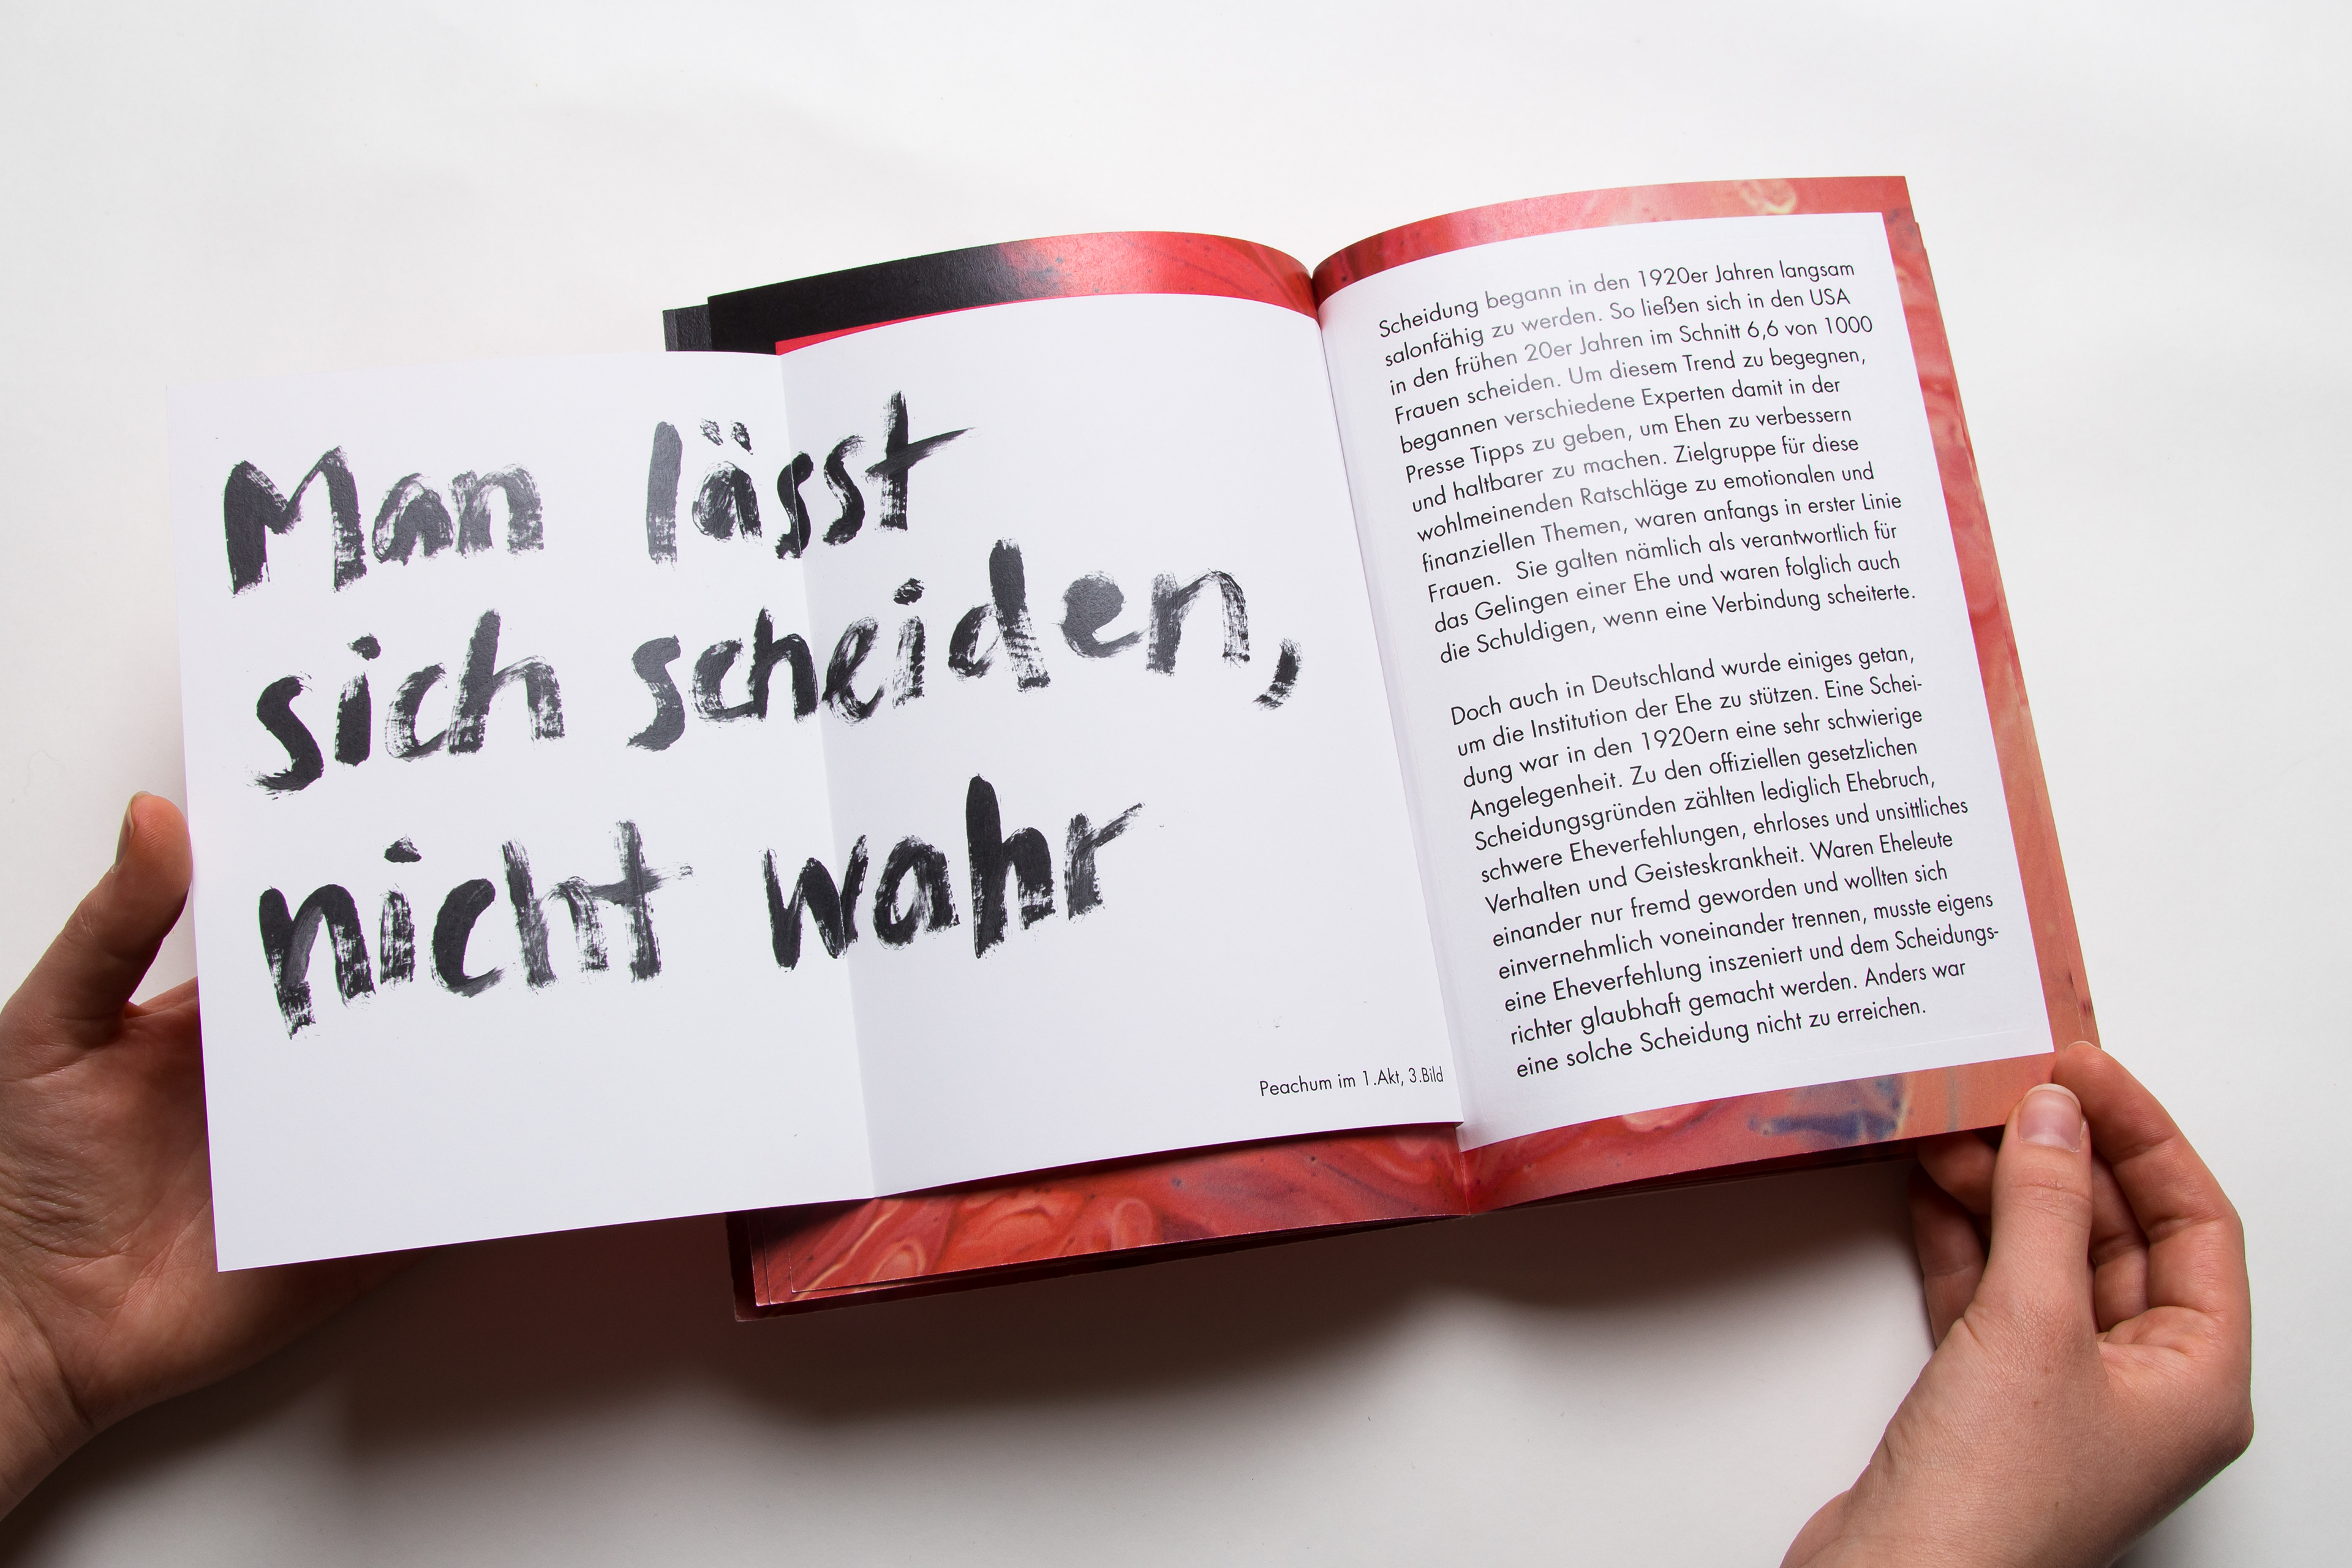 Man lässt
sich scheiden,
nicht wahr
Peachum im 1.Akt, 3.Bild
Scheidung begann in den 1920er Jahren langsam
salonfähig zu werden. So ließen sich in den USA
in den frühen 20er Jahren im Schnitt 6,6 von 1000
Frauen scheiden. Um diesem Trend zu begegnen,
begannen verschiedene Experten damit in der
Presse Tipps zu geben, um Ehen zu verbessern
und haltbarer zu machen. Zielgruppe für diese
wohlmeinenden Ratschläge zu emotionalen und
finanziellen Themen, waren anfangs in erster Linie
Frauen. Sie galten nämlich als verantwortlich für
das Gelingen einer Ehe und waren folglich auch
die Schuldigen, wenn eine Verbindung scheiterte.
Doch auch in Deutschland wurde einiges getan,
um die Institution der Ehe zu stützen. Eine Schei-
dung war in den 1920ern eine sehr schwierige
Angelegenheit. Zu den offiziellen gesetzlichen
Scheidungsgründen zählten lediglich Ehebruch,
schwere Eheverfehlungen, ehrloses und unsittliches
Verhalten und Geisteskrankheit. Waren Eheleute
einander nur fremd geworden und wollten sich
einvernehmlich voneinander trennen, musste eigens
eine Eheverfehlung inszeniert und dem Scheidungs-
richter glaubhaft gemacht werden. Anders war
eine solche Scheidung nicht zu erreichen.